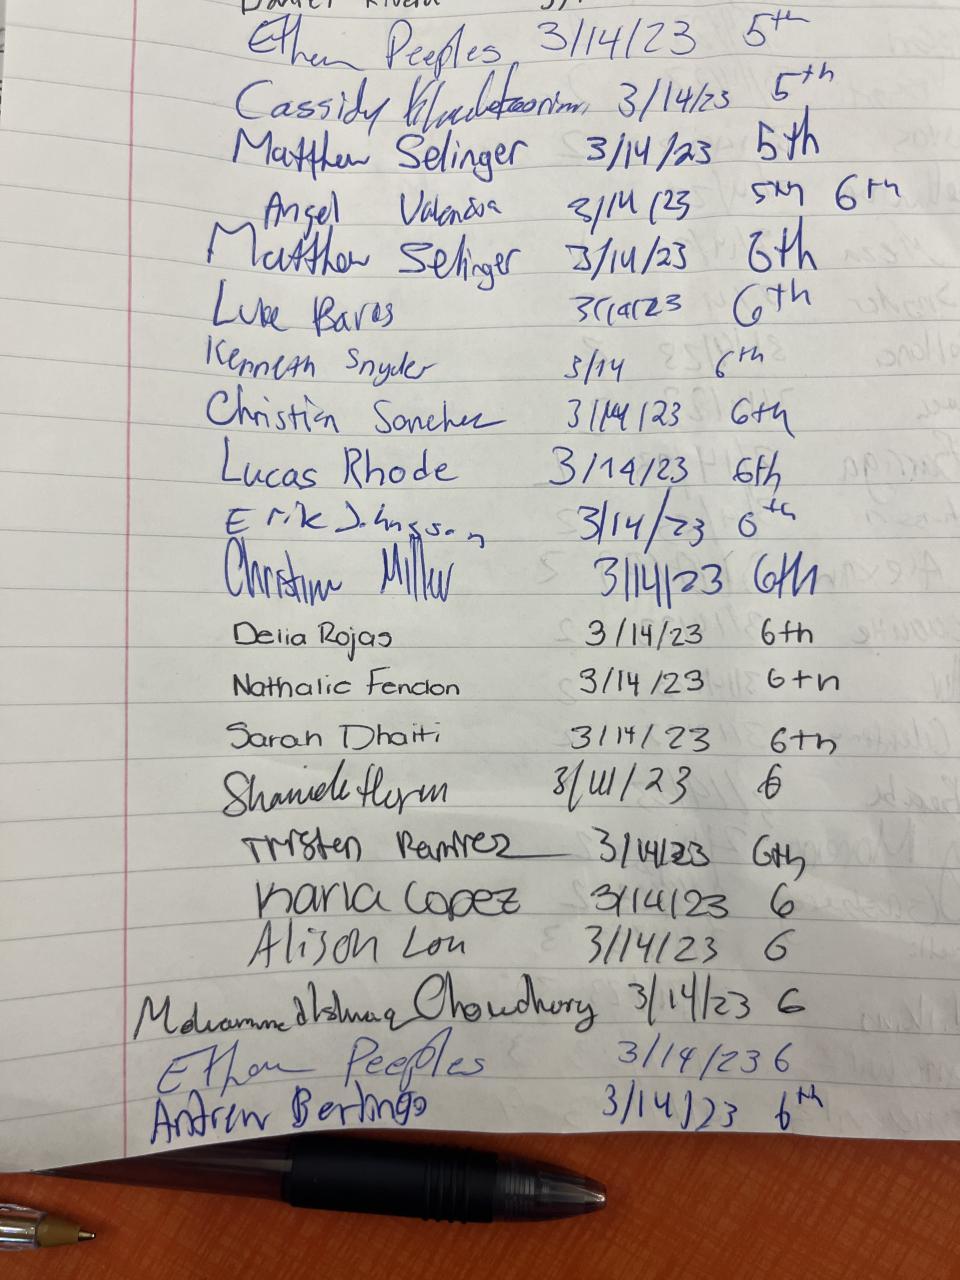 Daniel Rivera
Ethan Peeples 3/14/23 5th
Cassidy 3/14/23 5th
Matthew Selinger 3/14/23 5th
Angel Valencia 3/14/23 5th 6th
Matthew Selinger 3/14/23 6th
Luke Baros 3/14/23 6th
Kenneth Snyder 3/14 6th
Christian Sanchez 3/14/23 6th
Lucas Rhode 3/14/23 6th
Erik Johnsson 3/14/23 6th
Christine Miller 3/14/23 6th
Delia Rojas 3/14/23 6th
Nathalie Fendon 3/14/23 6th
Sarah Dhaiti 3/14/23 6th
3/14/23 6
Tristen Ramirez 3/14/23 6th
Karla Lopez 3/14/23 6
Alison Lou 3/14/23 6
Mohammed Ishmaq Chowdhory 3/14/23 6
Ethan Peeples 3/14/23 6
Andrew Berlingo 3/14/23 6th